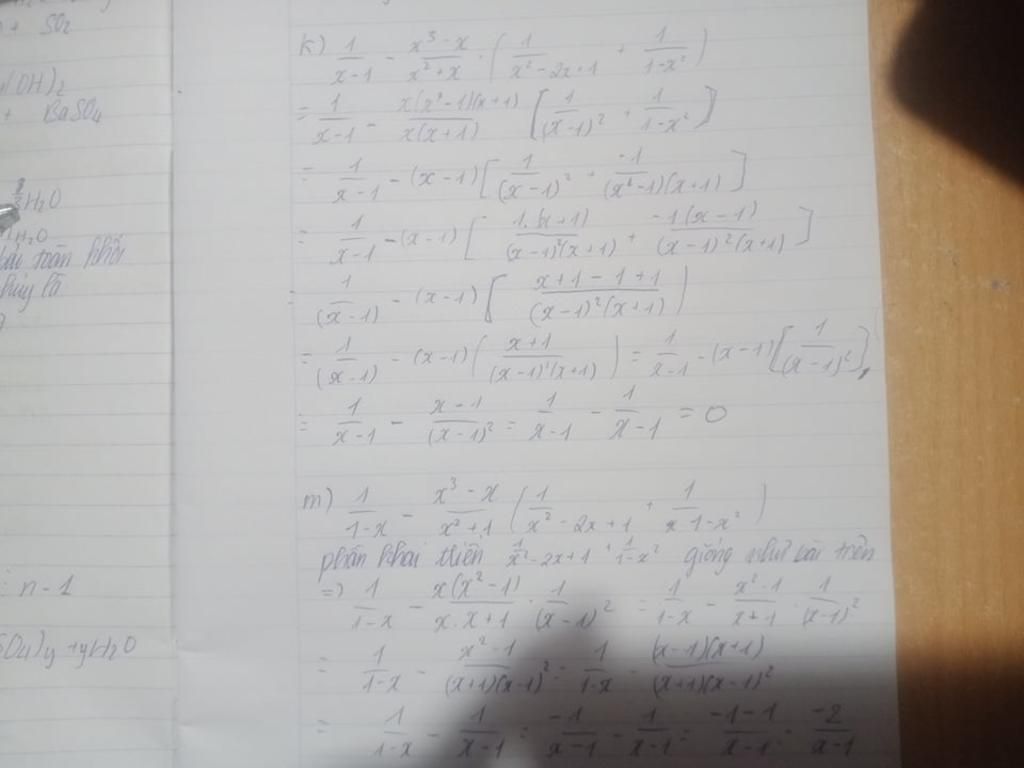 SO2
(OH)2
+ BaSO4
H2O
H2O
bài toán khối
n - 1
SO4)y + yH2O
k) 1/(x-1) - (x³-x)/(x²+x) · (1/(x²-2x+1) + 1/(1-x²))
= 1/(x-1) - x(x²-1)(x+1)/(x(x+1)) [1/(x-1)² + 1/(1-x²)]
= 1/(x-1) - (x-1) [1/(x-1)² + -1/((x-1)(x+1))]
= 1/(x-1) - (x-1) [1.(x+1)/((x-1)²(x+1)) + -1(x-1)/((x-1)²(x+1))]
= 1/(x-1) - (x-1) [(x+1-1+1)/((x-1)²(x+1))]
= 1/(x-1) - (x-1) ((x+1)/((x-1)²(x+1))) = 1/(x-1) - (x-1) [1/(x-1)²]
= 1/(x-1) - (x-1)/(x-1)² = 1/(x-1) - 1/(x-1) = 0
m) 1/(1-x) - (x³-x)/(x²+1) (1/(x²-2x+1) + 1/(1-x²))
phần khai triển 1/x²-2x+1 + 1/1-x² giống như bài trên
=> 1/(1-x) - x(x²-1)/(x.x+1) · 1/(x-1)² = 1/(1-x) - (x²-1)/(x+1) · 1/(x-1)²
= 1/(1-x) - (x²-1)/((x+1)(x-1)²) = 1/(1-x) - (x-1)(x+1)/((x+1)(x-1)²)
= 1/(1-x) - 1/(x-1) = -1/(x-1) - 1/(x-1) = (-1-1)/(x-1) = -2/(x-1)